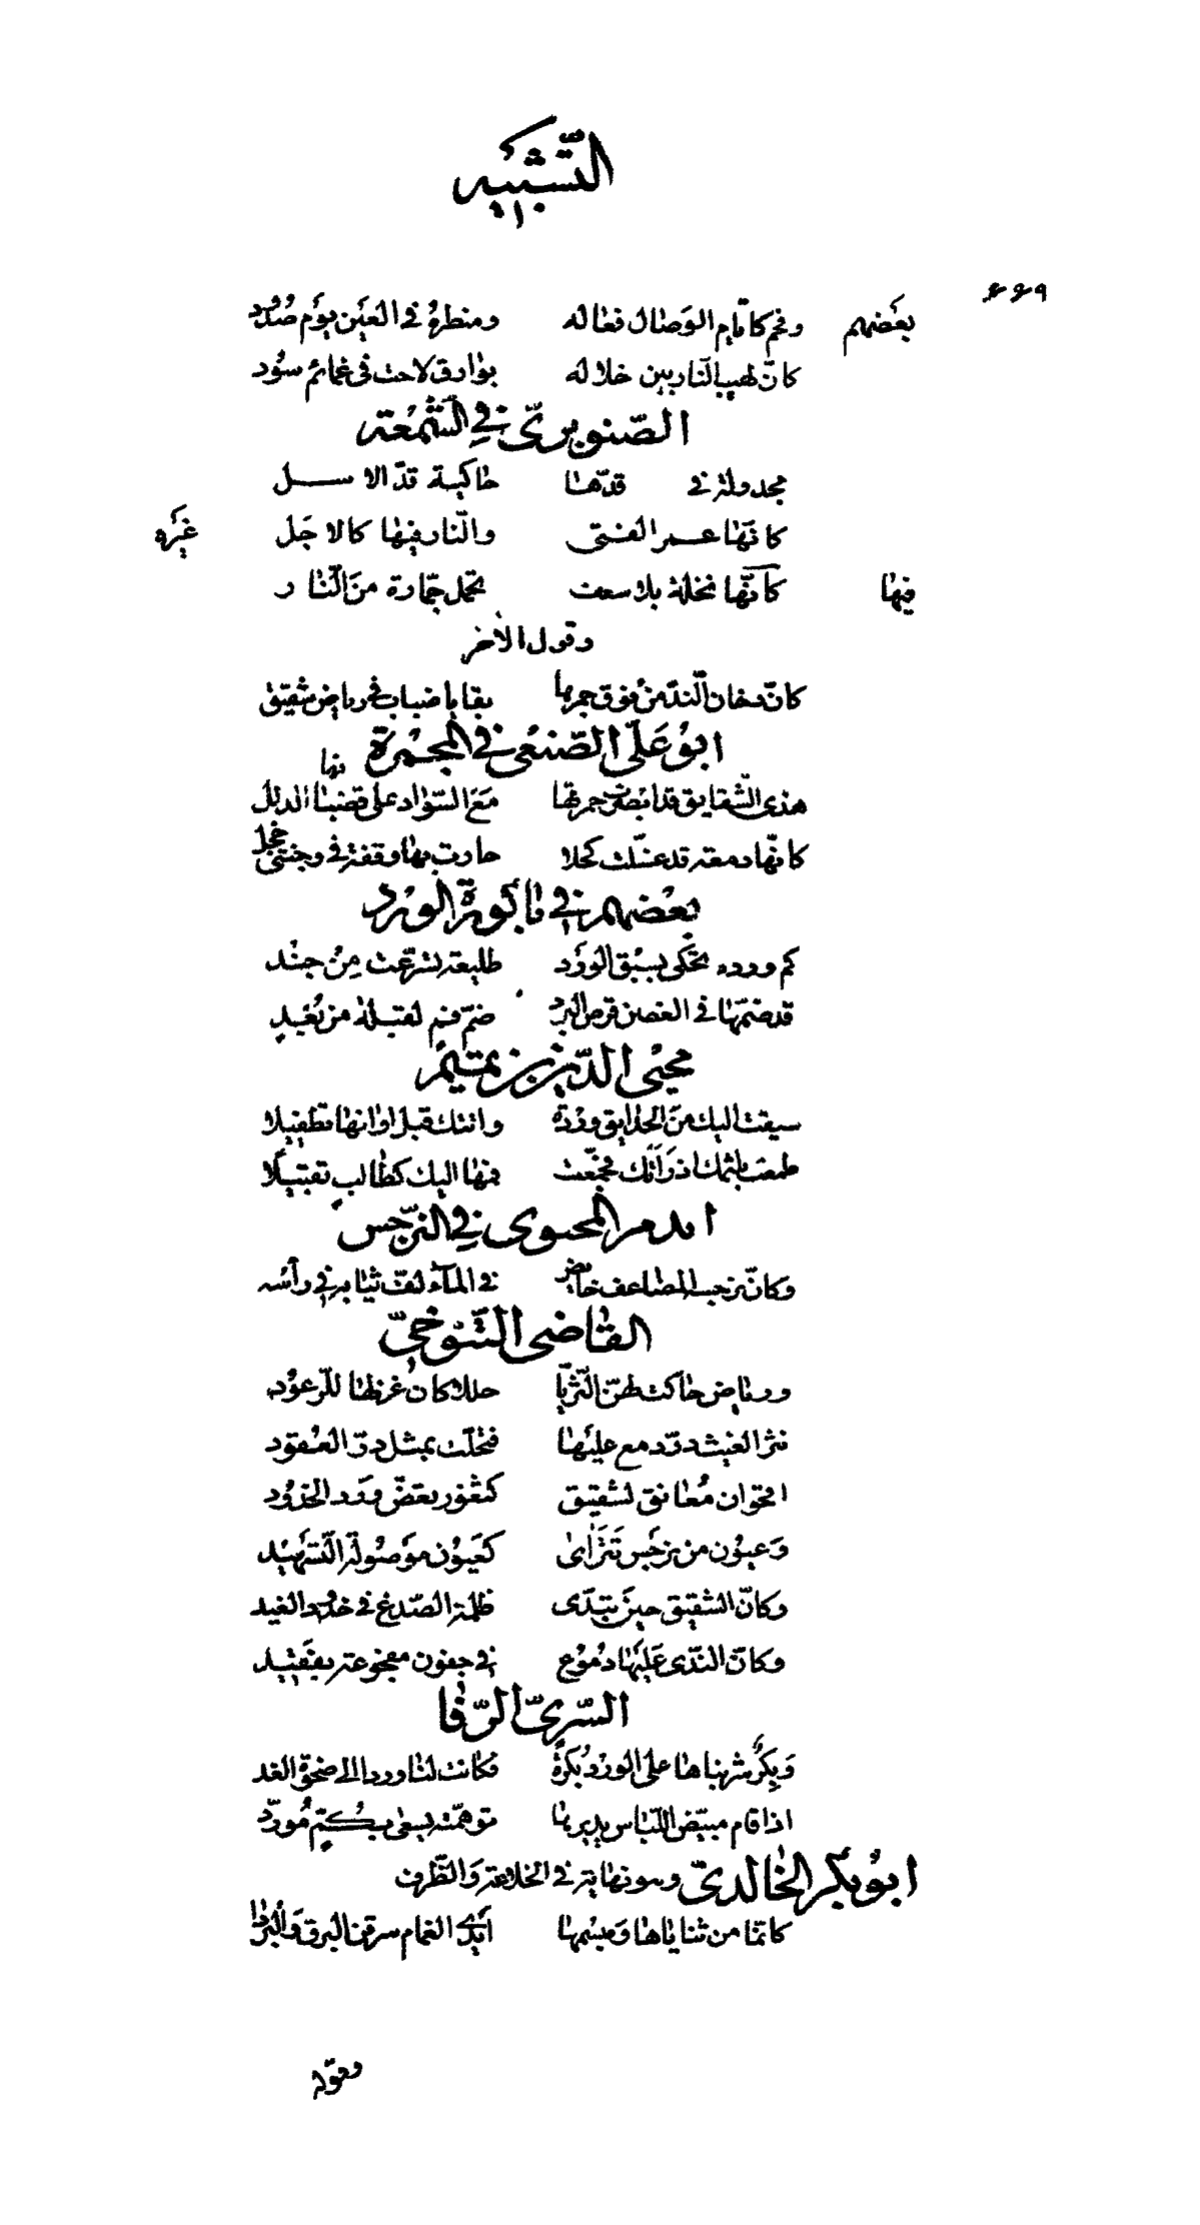 التشبيه
٤٤٩
بعضهم وفحم كايام الوصال فعاله ومنظره في العين يوم صدود
كانّ لهيب النار بين خلاله بوارق لاحت في غمائم سود
الصّنوبريّ في الشّمعة
مجدولة في قدّها حاكية قدّ الاسل
كانّها عمر الفتى والنار فيها كالاجَل غيره
فيها كأنّها نخلة بلا سعف تحمل جمّارة منَ النّار
وقول الآخر
كانّ دخان النّدّ منْ فوق جمرها بقايا ضباب في رياض شقيق
ابوُ عَلى الصّنعى في المجْمرة
هذى الشّقايق قد ابصرت حمرتها مَعَ السّواد على قضبانها الذلل
كانّها دمعة قد غسّلت كحلا جادت بها وقفة في وجنتى خجل
بعْضهم في باكورة الورْد
كم وردة تحكى بسبْق الورْد طليعة تسرّعت مِنْ جند
قد ضمّها في الغصن قرص البرد ضمّ فمٍ لقبلة من بُعْدِ
محيْى الدّين بن تميم
سيقت اليك منَ الحدايق وردة واتتك قبل اوانها تطفيلا
طمعت بلثمك اذ رَأتك فجمّعت فمها اليك كطالبٍ تقبيلًا
ايدمر المحيوى في النّرجس
وكانّ نرجسه المضاعف خائض في المآء لفّ ثيابه في رأسه
القاضى التّنوخيّ
ورياض حاكت لهنّ الثّريّا حللا كان غزلها للرّعوُد
نثر الغيث درّ دمع عليْها فتحلّت بمثل درّ العُقود
اقحوان مُعانق لشقيق كثغور تعضّ ورد الخدُود
وَعيوُن من نرجَس تَتَرَاىٰ كعَيوُن موَصُولة التّسْهيد
وكانّ الشقيق حينَ تبدّى ظلمة الصّدغ في خدُود الغيد
وكانّ النّدى عَليْها دُموُع في جفون مفجوعة بفقيد
السّريّ الرّفا
وَبِكْرٌ شربناها على الورْد بُكرةً فكانت لنا وردا الى ضحوة الغد
اذا قام مبيّض اللّباس يديرها توهمّته يسعٰى بكُمٍّ مُورّد
ابوُبكر الخالدىّ وهو نهاية في الخلاعة وَالظّرف
كانّما من ثناياها وَمبسْمها ايْدى الغمام سرقن البرق وَالبرَدا
وقوله